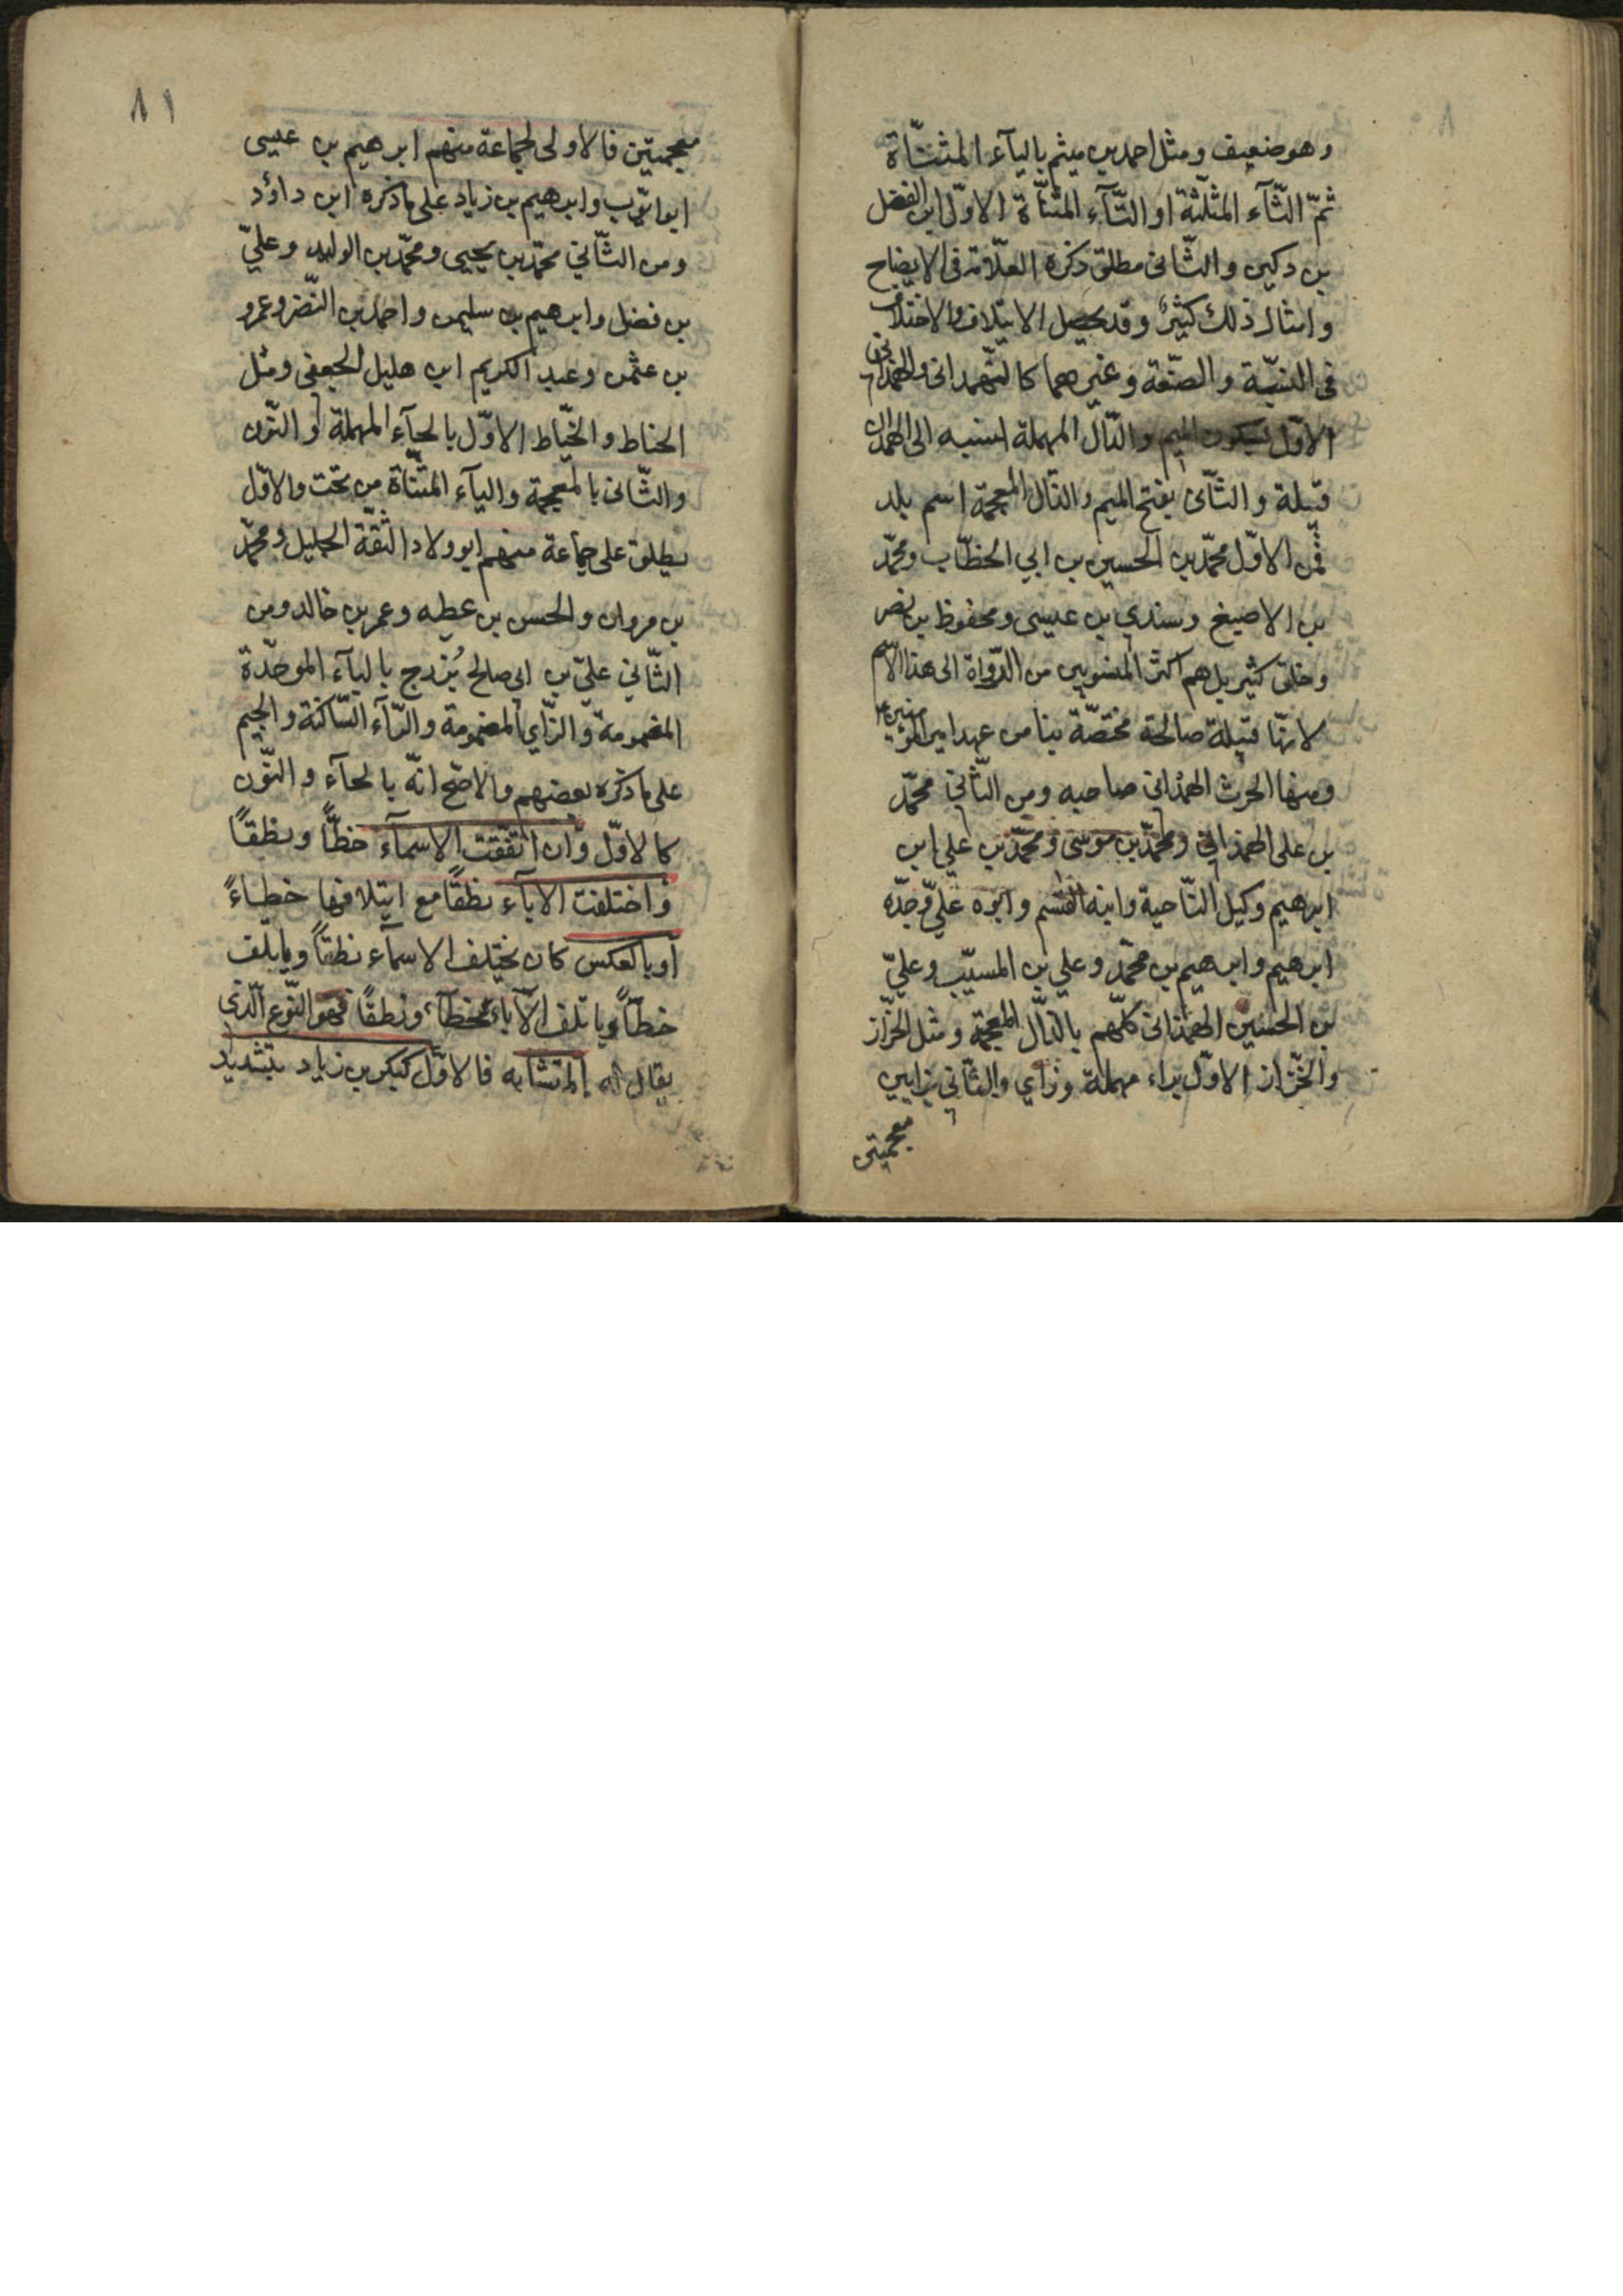 وهو ضعيف ومثل احمد بن ميثم بالياء المثنّاة
ثمّ الثّآء المثلّثة او التّآء المثنّاة الاوّل ابن الفضل
بن دكين والثّانى مطلق ذكره العلّامة فى الايضاح
وامثال ذلك كثيرٌ وقد يحصل الايتلاف والاختلاف
فى النسبة والصنعة وغيرهما كالهمدانى والهمذانى
الاوّل بسكون الميم والدّال المهملة نسبة الى همدان
قبيلة والثّانى بفتح الميم والذال المعجمة اسم بلد
فمن الاوّل محمّد بن الحسين بن ابي الخطّاب ومحمّد
بن الاصبغ وسندي بن عيسى ومحفوظ بن نصر
وخلق كثير بل هم اكثر المنسوبين من الرّواة الى هذا الاسم
لانّها قبيلة صالحة مختصّة بنا من عهد امير المؤمنين ع
ومنها الحرث الهمدانى صاحبه ومن الثّاني محمّد
بن على الهمذاني ومحمّد بن موسى ومحمّد بن علي ابن
ابرهيم وكيل النّاحية وابنه القسم وابوه عليّ وجدّه
ابرهيم وابرهيم بن محمّد وعلي بن المسيّب وعليّ
بن الحسين الهمذانى كلّهم بالذّال المعجمة ومثل الخرّاز
والخزّاز الاوّل براء مهملة وزاي والثّانى بزايين
معجمتين
٨١
معجمتين فالاولى لجماعة منهم ابرهيم بن عيسى
ابو ايّوب وابرهيم بن زياد على ما ذكره ابن داؤد
ومن الثّاني محمّد بن يحيى ومحمّد بن الوليد وعليّ
بن فضل وابرهيم بن سليمن واحمد بن النّضر وعمرو
بن عثمن وعبد الكريم ابن هليل الجعفى ومثل
الحناط والخيّاط الاوّل بالحآء المهملة والنّون
والثّانى بالمعجمة واليآء المثنّاة من تحت والاوّل
يطلق على جماعة منهم ابو ولاد الثّقة الجليل ومحمّد
بن مروان والحسن بن عطيه وعمر بن خالد ومن
الثّاني عليّ بن ابى صالح بُزرج بالبآء الموحّدة
المضمومة والزّاي المضمومة والرّآء السّاكنة والجيم
على ما ذكره بعضهم والاصّح انّه بالحآء والنّون
كالاوّل وان اتّفقت الاسمآء خطًّا ونطقًا
واختلفت الابآء نطقًا مع ايتلافها خطاءً
أو بالعكس كان يختلف الاسمآء نطقاً ويأتلف
خطّاً وياتلف الآباء خطآً ونطقًا فهو النّوع الّذى
يقال له المتشابه فالاوّل كبكر بن زياد بتشديد